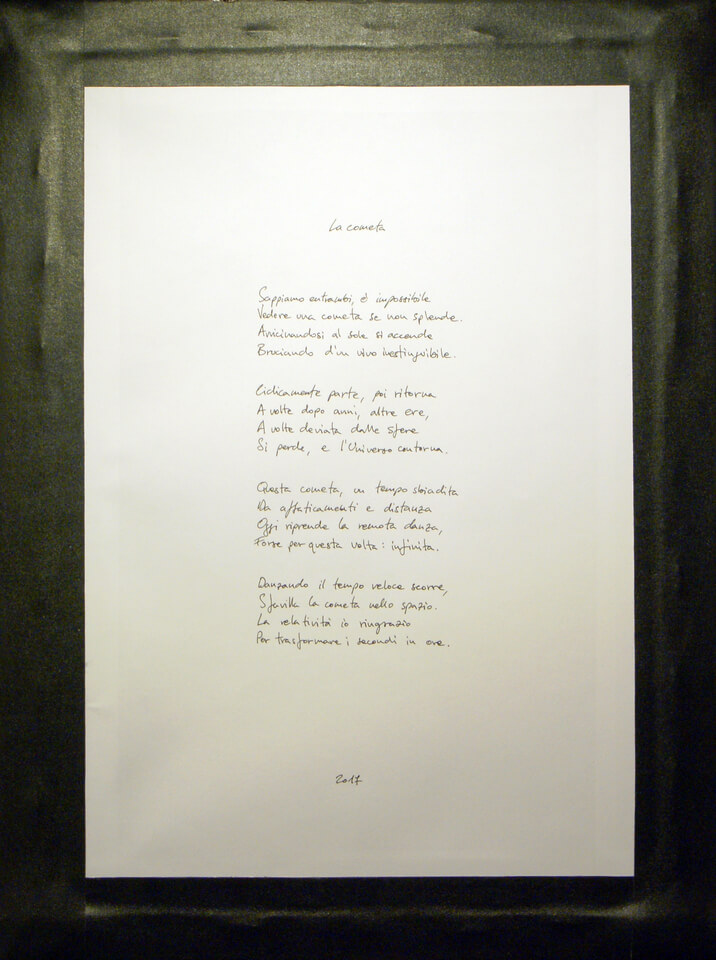 La cometa
Sappiamo entrambi, è impossibile
Vedere una cometa se non splende.
Avvicinandosi al sole si accende
Bruciando d'un vivo inestinguibile.
Ciclicamente parte, poi ritorna
A volte dopo anni, altre ere,
A volte deviata dalle sfere
Si perde, e l'Universo contorna.
Questa cometa, un tempo sbiadita
Da affaticamenti e distanza
Oggi riprende la remota danza,
Forse per questa volta: infinita.
Danzando il tempo veloce scorre,
Sfavilla la cometa nello spazio.
La relatività io ringrazio
Per trasformare i secondi in ore.
2017